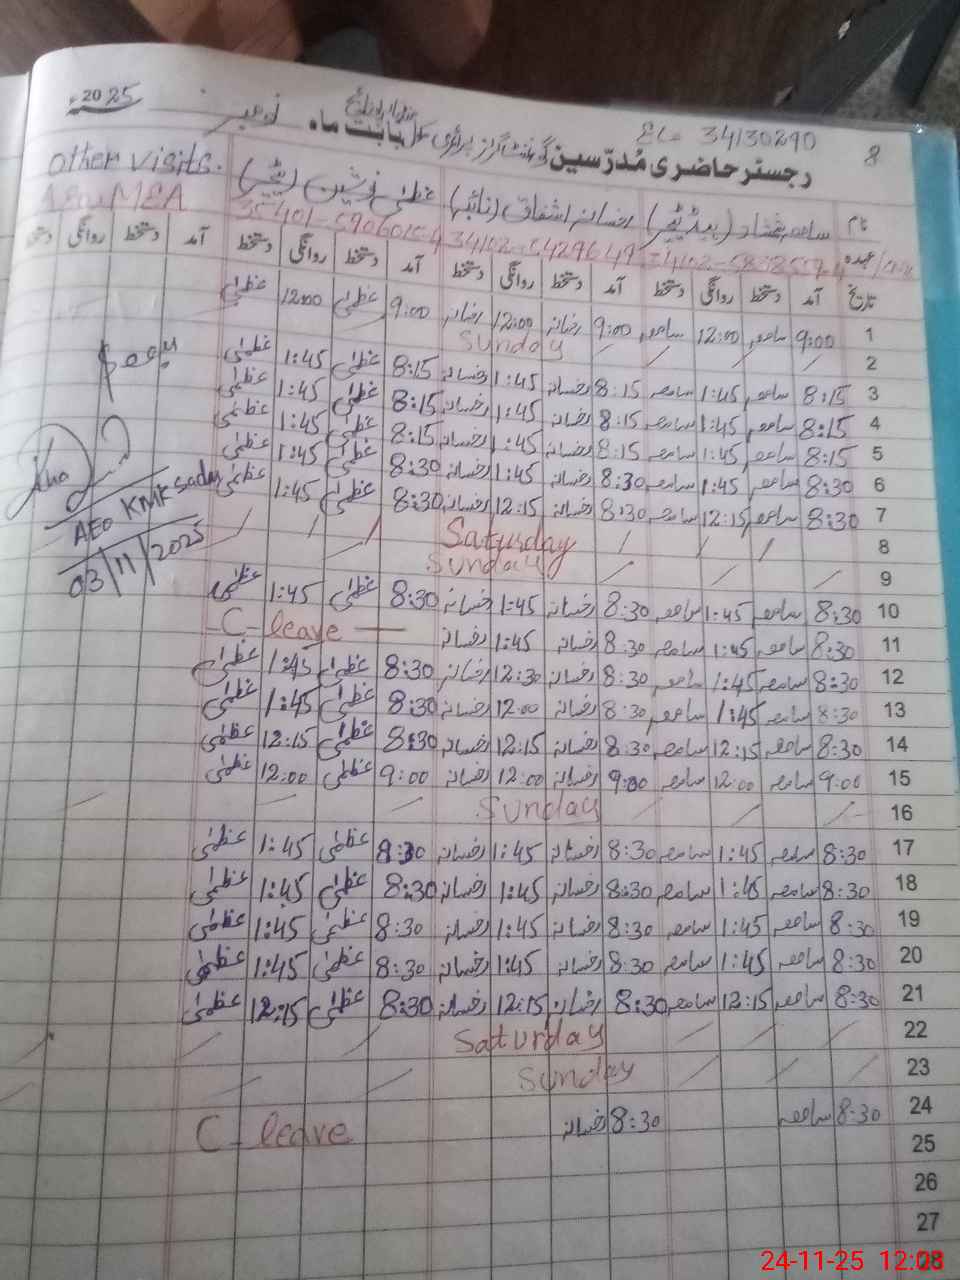 2025
EC = 34130290
8
رجسٹر حاضری مدرسین گورنمنٹ گرلز پرائمری سکول بابت ماہ نومبر
other visits.
AEO, MEA
نام سامعہ شمشاد (ہیڈ ٹیچر) رخسانہ اشفاق عظمیٰ نوشین (ٹیچر)
عہدہ
تاریخ آمد دستخط روانگی دستخط آمد دستخط روانگی دستخط آمد دستخط روانگی دستخط آمد دستخط روانگی دستخط
1 9:00 سامعہ 12:00 سامعہ 9:00 رخسانہ 12:00 رخسانہ 9:00 عظمیٰ 12:00 عظمیٰ
2 Sunday
3 8:15 سامعہ 1:45 سامعہ 8:15 رخسانہ 1:45 رخسانہ 8:15 عظمیٰ 1:45 عظمیٰ
4 8:15 سامعہ 1:45 سامعہ 8:15 رخسانہ 1:45 رخسانہ 8:15 عظمیٰ 1:45 عظمیٰ
5 8:15 سامعہ 1:45 سامعہ 8:15 رخسانہ 1:45 رخسانہ 8:15 عظمیٰ 1:45 عظمیٰ
6 8:30 سامعہ 1:45 سامعہ 8:30 رخسانہ 1:45 رخسانہ 8:30 عظمیٰ 1:45 عظمیٰ
7 8:30 سامعہ 12:15 سامعہ 8:30 رخسانہ 12:15 رخسانہ 8:30 عظمیٰ 1:45 عظمیٰ
8 Saturday
9 Sunday
10 8:30 سامعہ 1:45 سامعہ 8:30 رخسانہ 1:45 رخسانہ 8:30 عظمیٰ 1:45 عظمیٰ
11 8:30 سامعہ 1:45 سامعہ 8:30 رخسانہ 1:45 رخسانہ C- leave
12 8:30 سامعہ 1:45 سامعہ 8:30 رخسانہ 12:30 رخسانہ 8:30 عظمیٰ 1:45 عظمیٰ
13 8:30 سامعہ 1:45 سامعہ 8:30 رخسانہ 12:00 رخسانہ 8:30 عظمیٰ 1:45 عظمیٰ
14 8:30 سامعہ 12:15 سامعہ 8:30 رخسانہ 12:15 رخسانہ 8:30 عظمیٰ 12:15 عظمیٰ
15 9:00 سامعہ 12:00 سامعہ 9:00 رخسانہ 12:00 رخسانہ 9:00 عظمیٰ 12:00 عظمیٰ
16 Sunday
17 8:30 سامعہ 1:45 سامعہ 8:30 رخسانہ 1:45 رخسانہ 8:30 عظمیٰ 1:45 عظمیٰ
18 8:30 سامعہ 1:45 سامعہ 8:30 رخسانہ 1:45 رخسانہ 8:30 عظمیٰ 1:45 عظمیٰ
19 8:30 سامعہ 1:45 سامعہ 8:30 رخسانہ 1:45 رخسانہ 8:30 عظمیٰ 1:45 عظمیٰ
20 8:30 سامعہ 1:45 سامعہ 8:30 رخسانہ 1:45 رخسانہ 8:30 عظمیٰ 1:45 عظمیٰ
21 8:30 سامعہ 12:15 سامعہ 8:30 رخسانہ 12:15 رخسانہ 8:30 عظمیٰ 12:15 عظمیٰ
22 Saturday
23 Sunday
24 8:30 سامعہ 8:30 رخسانہ C- leave
25
26
27
28
AEO KMK Sadar
03/11/2025
24-11-25 12:08